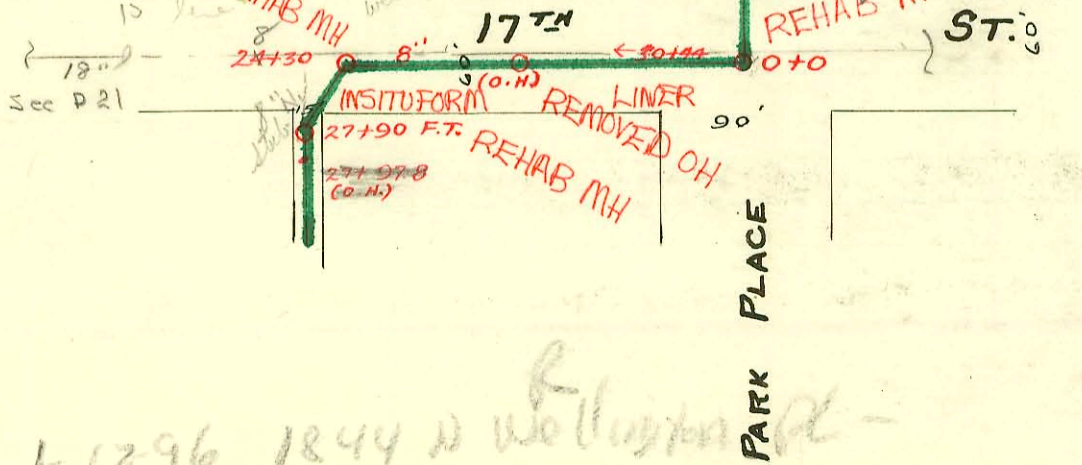 REHAB MH
17TH
ST.
60'
24+30
8"
60
(O.H)
←30+44
0+0
18"
see P 21
INSITUFORM
LINER
REMOVED OH
90'
27+90 F.T.
REHAB MH
27+97.8
(O.H.)
PARK PLACE
1296 1844 N Wellington Pl -